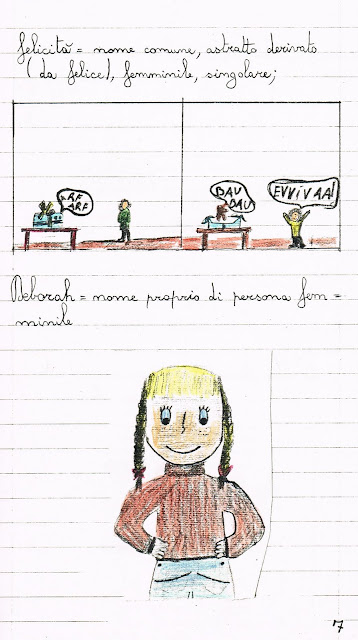 felicità = nome comune, astratto derivato
(da felice), femminile, singolare;
ARF
ARF
BAU
BAU
EVVIVAA!
Deborah = nome proprio di persona fem=
minile
7